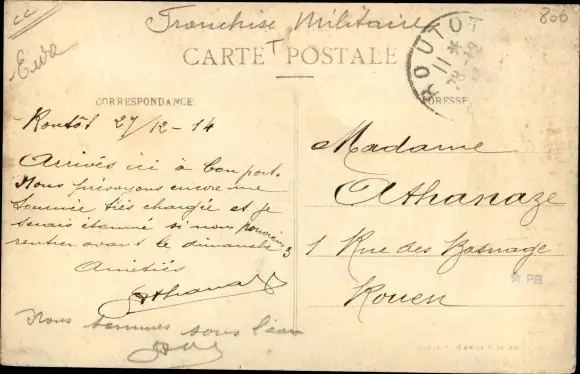 Franchise Militaire
806
Eure
CARTE POSTALE
ROUTOT
11 *
28-12
CORRESPONDANCE
ADRESSE
Routôt 27/12-14
Arrivés ici à bon port.
Nous prévoyons encore une
tournée très chargée et je
serais étonné si nous pouvions
rentrer avant le dimanche 3
Amitiés
Athanaze
Nous sommes sous l'eau
Madame
Athanaze
1 Rue des Basnage
Rouen
PB